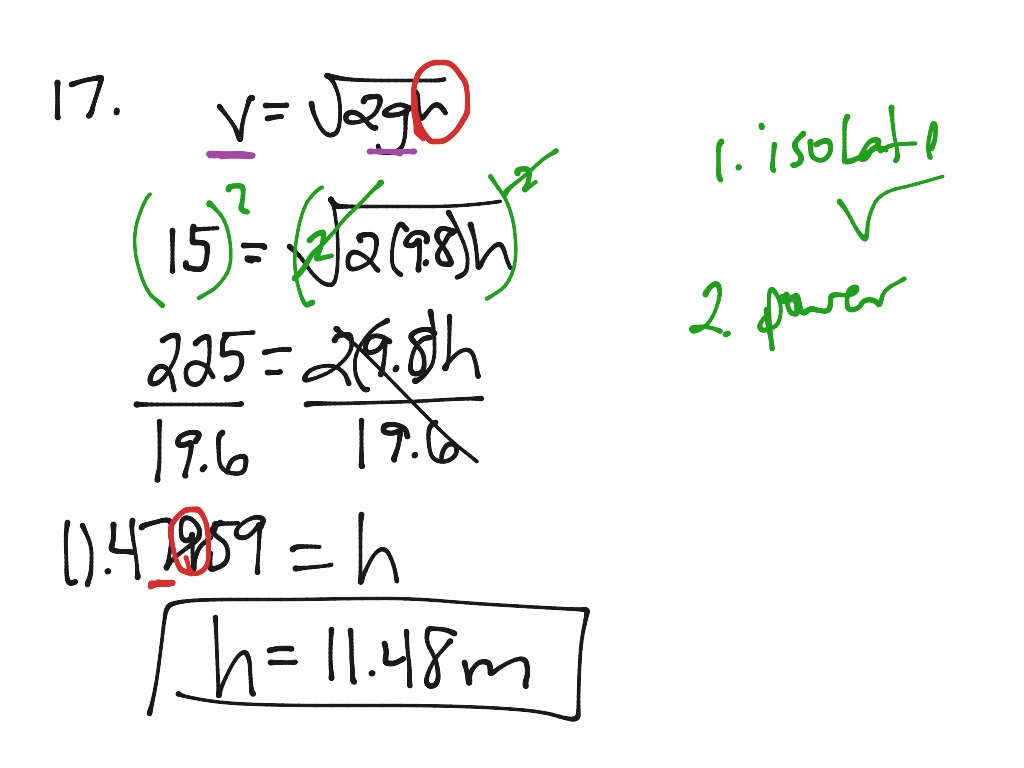 17. v = √2gh
(15)² = (²√2(9.8)h)²
225 = 2(9.8)h
19.6 19.6
11.47959 = h
h = 11.48m
1. isolate
√
2. power